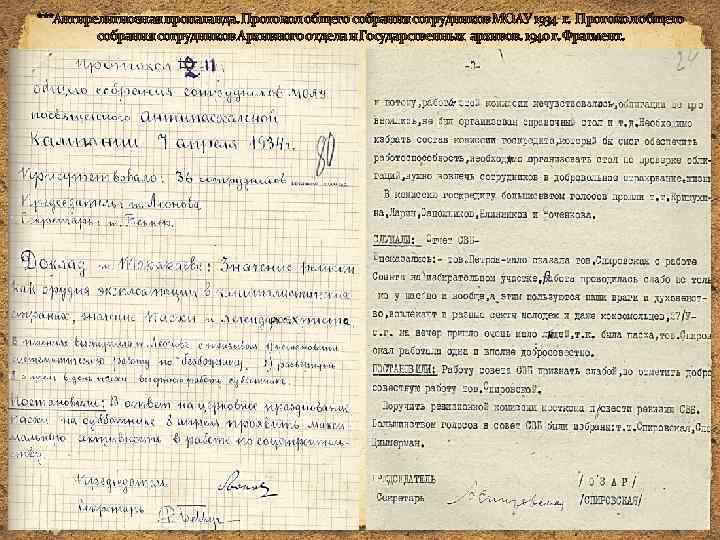 ***Антирелигиозная пропаганда. Протокол общего собрания сотрудников МОАУ 1934 г. Протокол общего
собрания сотрудников Архивного отдела и Государственных архивов. 1940 г. Фрагмент.
Протокол 11
общего собрания сотрудников МОАУ
посвященного антипасхальной
кампании 7 апреля 1934 г.
80
Присутствовало: 36 сотрудников
Председатель: т. Леонова
Секретарь: т.
Доклад т. : Значение религии
как орудия эксплоатации в капиталистических
странах, значение пасхи и легенда о христе.
В прениях выступили т. Леонова с призывом 1) развернуть
систематическую работу по безбожному, 2) развернуть
Постановили: В ответ на церковное празднование
пасхи на субботнике 8 апреля проявить макси
мального активность в работе по соцстроитель-
ству.
Председатель
Секретарь
-7-
24
и потому, работа этой комиссии нечувствовалась, облигации не про
верялись, не был организован справочный стол и т.д. Необходимо
избрать состав комиссии госкредита, который бы смог обеспечить
работоспособность, необходимо организовать стол по проверке обли-
гаций, нужно вовлечь сотрудников в добровольное страхование, жизни
В комиссию госкредиту большинством голосов прошли т.т.
на, Ларин, Сапожников, Блинников и Коченкова.
СЛУШАЛИ: Отчет СВБ-
Высказались:- тов. Петров-мало сказала тов. Спировская о работе
Совета на избирательном участке, Работа проводилась слабо не толь
ко у нас но и вообще, а этим пользуются наши враги и духовенст-
во, вовлекают в разные секты молодеж и даже комсомольцев, 27/У-
с.г. на вечер пришло очень мало людей, т.к. была пасха, тов. Спиров
ская работали одна и вполне добросовестно.
ПОСТАНОВИЛИ: Работу совета СВБ признать слабой, но отметить добро
совестную работу тов. Спировской.
Поручить ревизионной комиссии месткома провести ревизию СВБ.
Большинством голосов в совет СВБ были избраны: т.т. Спировская,
Циммерман.
ПРЕДСЕДАТЕЛЬ / О З А Р /
Секретарь /СПИРОВСКАЯ/